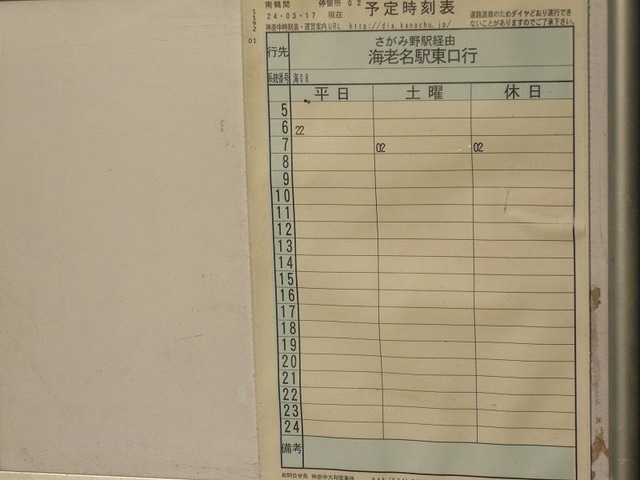 南鶴間 停留所 02 予定時刻表
24-03-17 現在
神奈中時刻表・運賃案内URL http://dia.kanachu.jp/
道路混雑のためダイヤどおり運行でき
ないことがありますのでご了承下さい。
行先 さがみ野駅経由
海老名駅東口行
系統番号 海08
平日 土曜 休日
5
6 22
7 02 02
8
9
10
11
12
13
14
15
16
17
18
19
20
21
22
23
24
備考
お問合せ先 神奈中大和営業所